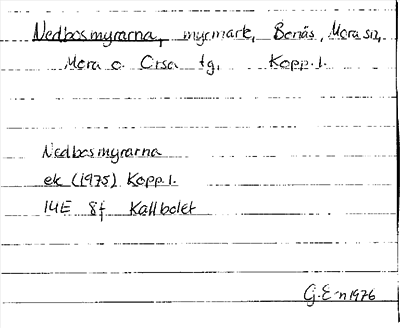 Nedbosmyrarna, myrmark, Bonäs, Mora sn,
Mora o. Orsa tg. Kopp. l.
Nedbosmyrarna
ek (1975) Kopp. l.
14E 8f Kallbolet
G. E-n 1976